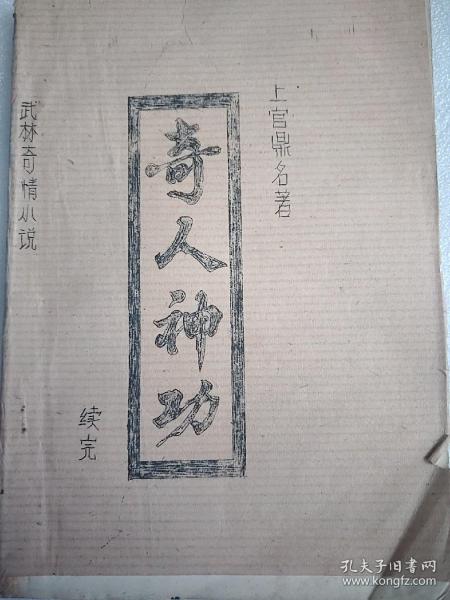 上官鼎名著
奇人神功
武林奇情小说
续完
孔夫子旧书网
www.kongfz.com